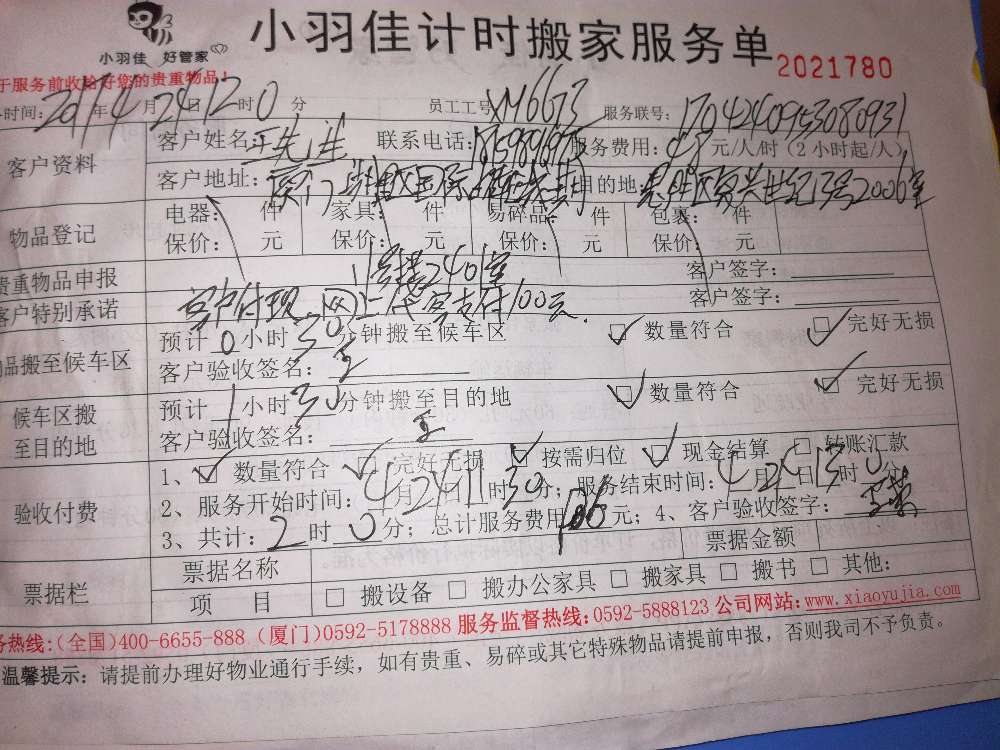 小羽佳 好管家
小羽佳计时搬家服务单
2021780
于服务前收给好您的贵重物品！
时间: 2017年4月24日12时0分 员工工号 XM6673 服务联号: 1704240953080931
客户资料
客户姓名: 王先生 联系电话: 服务费用: 48元/人/时（2小时起/人）
客户地址: 厦门 目的地: 思明区复兴世纪13号2006室
11号楼2401室
物品登记
电器: 件 家具: 件 易碎品: 件 包裹: 件
保价: 元 保价: 元 保价: 元 保价: 元
贵重物品申报 客户签字:
客户特别承诺 客户付现 网上代客支付100元. 客户签字:
品搬至候车区
预计0小时30分钟搬至候车区 ☑ 数量符合 ☑ 完好无损
客户验收签名: 王
候车区搬至目的地
预计1小时30分钟搬至目的地 ☑ 数量符合 ☑ 完好无损
客户验收签名: 王
验收付费
1、☑ 数量符合 ☑ 完好无损 ☑ 按需归位 ☑ 现金结算 □ 转账汇款
2、服务开始时间: 4月24日11时30分；服务结束时间: 4月24日13时0
3、共计: 2时0分；总计服务费用 元；4、客户验收签字:
票据栏
票据名称 票据金额
项 目 □ 搬设备 □ 搬办公家具 □ 搬家具 □ 搬书 □ 其他:
务热线:(全国)400-6655-888 (厦门)0592-5178888 服务监督热线:0592-5888123 公司网站:www.xiaoyujia.com
温馨提示: 请提前办理好物业通行手续，如有贵重、易碎或其它特殊物品请提前申报，否则我司不予负责。